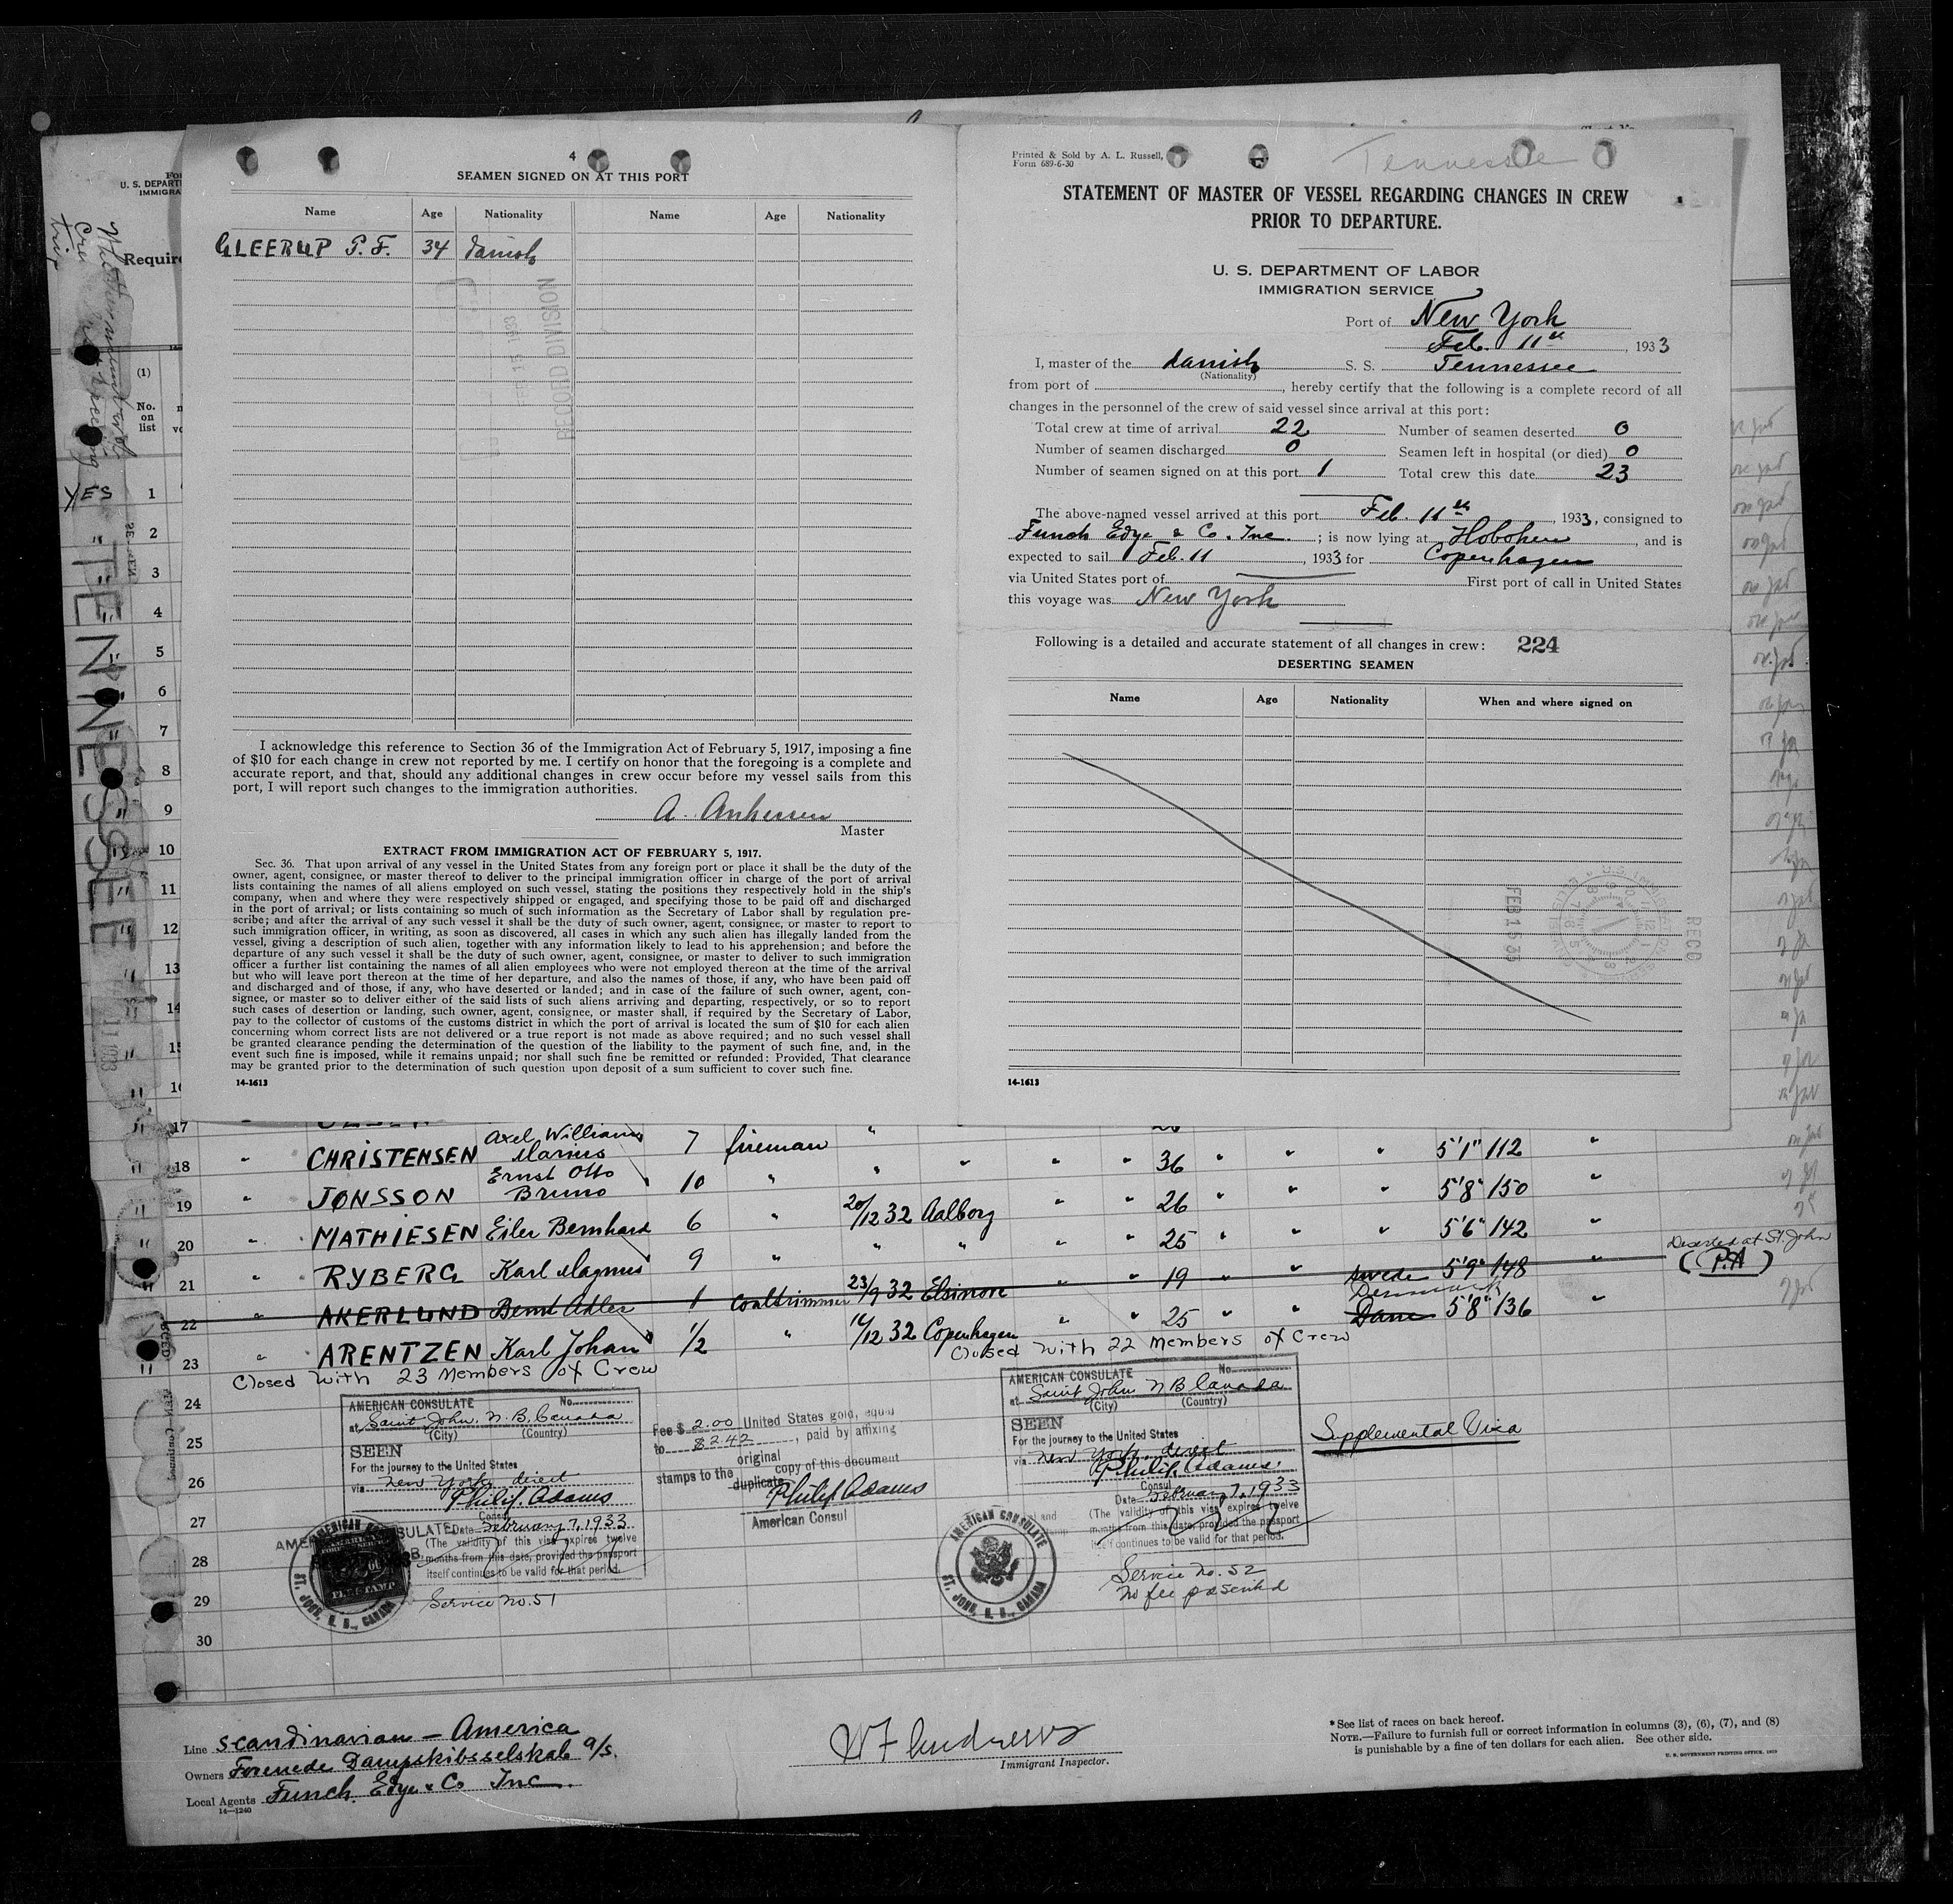 4
SEAMEN SIGNED ON AT THIS PORT
Name Age Nationality Name Age Nationality
GLEERUP P.F. 34 danish
RECORD DIVISION
I acknowledge this reference to Section 36 of the Immigration Act of February 5, 1917, imposing a fine
of $10 for each change in crew not reported by me. I certify on honor that the foregoing is a complete and
accurate report, and that, should any additional changes in crew occur before my vessel sails from this
port, I will report such changes to the immigration authorities.
A.
Master
EXTRACT FROM IMMIGRATION ACT OF FEBRUARY 5, 1917.
Sec. 36. That upon arrival of any vessel in the United States from any foreign port or place it shall be the duty of the
owner, agent, consignee, or master thereof to deliver to the principal immigration officer in charge of the port of arrival
lists containing the names of all aliens employed on such vessel, stating the positions they respectively hold in the ship's
company, when and where they were respectively shipped or engaged, and specifying those to be paid off and discharged
in the port of arrival; or lists containing so much of such information as the Secretary of Labor shall by regulation pre-
scribe; and after the arrival of any such vessel it shall be the duty of such owner, agent, consignee, or master to report to
such immigration officer, in writing, as soon as discovered, all cases in which any such alien has illegally landed from the
vessel, giving a description of such alien, together with any information likely to lead to his apprehension; and before the
departure of any such vessel it shall be the duty of such owner, agent, consignee, or master to deliver to such immigration
officer a further list containing the names of all alien employees who were not employed thereon at the time of the arrival
but who will leave port thereon at the time of her departure, and also the names of those, if any, who have been paid off
and discharged and of those, if any, who have deserted or landed; and in case of the failure of such owner, agent, con-
signee, or master so to deliver either of the said lists of such aliens arriving and departing, respectively, or so to report
such cases of desertion or landing, such owner, agent, consignee, or master shall, if required by the Secretary of Labor,
pay to the collector of customs of the customs district in which the port of arrival is located the sum of $10 for each alien
concerning whom correct lists are not delivered or a true report is not made as above required; and no such vessel shall
be granted clearance pending the determination of the question of the liability to the payment of such fine, and, in the
event such fine is imposed, while it remains unpaid; nor shall such fine be remitted or refunded: Provided, That clearance
may be granted prior to the determination of such question upon deposit of a sum sufficient to cover such fine.
14-1613
Printed & Sold by A. L. Russell,
Form 689-6-30
Tennessee
STATEMENT OF MASTER OF VESSEL REGARDING CHANGES IN CREW
PRIOR TO DEPARTURE.
U. S. DEPARTMENT OF LABOR
IMMIGRATION SERVICE
Port of New York
Feb. 11th, 1933
I, master of the danish S. S. Tennessee
(Nationality)
from port of , hereby certify that the following is a complete record of all
changes in the personnel of the crew of said vessel since arrival at this port:
Total crew at time of arrival 22 Number of seamen deserted 0
Number of seamen discharged 0 Seamen left in hospital (or died) 0
Number of seamen signed on at this port 1 Total crew this date 23
The above-named vessel arrived at this port Feb. 11th, 1933, consigned to
Funch Edye & Co. Inc. ; is now lying at Hoboken, and is
expected to sail Feb. 11, 1933 for Copenhagen
via United States port of First port of call in United States
this voyage was New York
Following is a detailed and accurate statement of all changes in crew: 224
DESERTING SEAMEN
Name Age Nationality When and where signed on
FEB 15 33
RECD
14-1613
U. S. DEPART
IMMIGRA
Require
(1)
No.
on
list
YES
TENNESSEE
1
2
3
4
5
6
7
8
9
10
11
12
13
14
15
16
17
18 " CHRISTENSEN Axel William Marius 7 fireman " " " " 36 " " " 5'1" 112 "
19 " JØNSSON Ernst Otto Bruno 10 " 20/12 32 Aalborg " " 26 " " " 5'8" 150 "
20 " MATHIESEN Eiler Bernhard 6 " " " " " 25 " " " 5'6" 142 "
21 " RYBERG Karl Magnus 9 " 23/9 32 Elsinore " " 19 " " Swede 5'9" 148 " Deserted at St. John
(P.A)
22 " AKERLUND Bernt Adler 1 Coaltrimmer 14/12 32 Copenhagen " " 25 " " Dane Denmark 5'8" 136 "
23 " ARENTZEN Karl Johan 1/2 "
Closed with 22 Members of Crew
Closed with 23 Members of Crew
24
25
26
27
28
29
30
AMERICAN CONSULATE No.
at Saint John, N.B. Canada
(City) (Country)
SEEN
For the journey to the United States
via New York direct
Philip Adams
Consul
Date February 7, 1933
(The validity of this visa expires twelve
months from this date, provided the passport
itself continues to be valid for that period.
Service No. 51
AMERICAN CONSULATE
ST. JOHN, N. B., CANADA
FEE STAMP
Fee $ 2.00 United States gold, equal
to $2.42, paid by affixing
stamps to the original duplicate copy of this document
Philip Adams
American Consul
AMERICAN CONSULATE No.
at Saint John N B Canada
(City) (Country)
SEEN
For the journey to the United States
via New York direct
Philip Adams
Consul
Date February 7, 1933
(The validity of this visa expires twelve
months from this date, provided the passport
itself continues to be valid for that period.
Supplemental Visa
Service No. 52
No fee
AMERICAN CONSULATE
ST. JOHN, N. B., CANADA
Line Scandinavian - America
Owners Forenede Dampskibsselskab a/s.
Local Agents Funch, Edye & Co Inc.
14-1240
Immigrant Inspector.
* See list of races on back hereof.
NOTE.—Failure to furnish full or correct information in columns (3), (6), (7), and (8)
is punishable by a fine of ten dollars for each alien. See other side.
U. S. GOVERNMENT PRINTING OFFICE